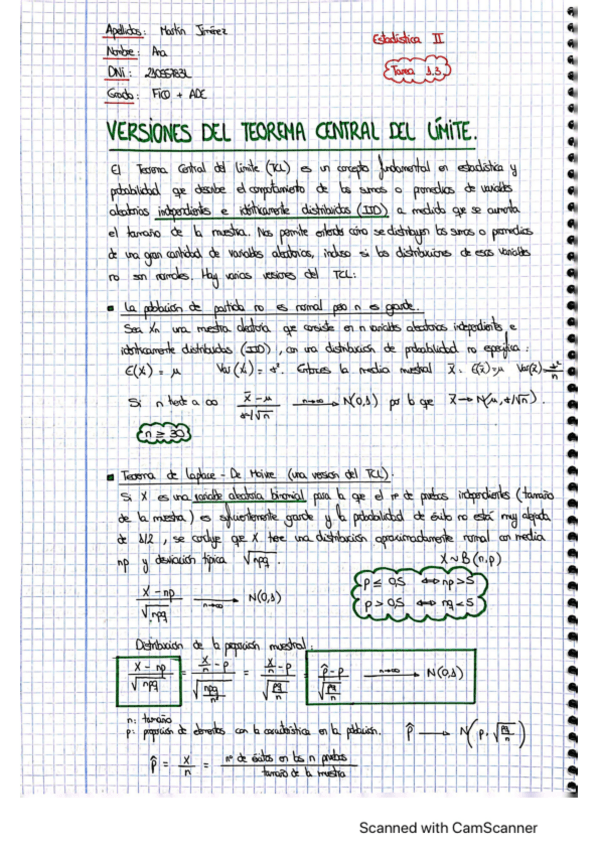 Apellidos: Martín Jiménez
Estadística II
Nombre: Ana
Tarea 1.3
DNI:
Grado: FICO + ADE
VERSIONES DEL TEOREMA CENTRAL DEL LÍMITE.
El Teorema Central del Límite (TCL) es un concepto fundamental en estadística y
probabilidad que describe el comportamiento de las sumas o promedios de variables
aleatorias independientes e idénticamente distribuidas (IID) a medida que se aumenta
el tamaño de la muestra. Nos permite entender cómo se distribuyen las sumas o promedios
de una gran cantidad de variables aleatorias, incluso si las distribuciones de esas variables
no son normales. Hay varias versiones del TCL:
La población de partida no es normal pero n es grande.
Sea Xn una muestra aleatoria que consiste en n variables aleatorias independientes e
idénticamente distribuidas (IID), con una distribución de probabilidad no específica:
E(X) = μ Var(X) = σ². Entonces la media muestral X̄. E(x̄)=μ Var(x̄)=σ²/n
Si n tiende a ∞ (X̄ - μ)/(σ/√n) n→∞ → N(0,1) por lo que X̄ → N(μ, σ/√n).
n ≥ 30
Teorema de Laplace - De Moivre (una versión del TCL).
Si X es una variable aleatoria binomial para la que el nº de pruebas independientes (tamaño
de la muestra) es suficientemente grande y la probabilidad de éxito no está muy alejada
de 1/2, se concluye que X tiene una distribución aproximadamente normal con media
np y desviación típica √npq. X~B(n,p)
p ≤ 0,5 ⟺ np > 5
(X - np)/√npq n→∞ → N(0,1)
p > 0,5 ⟺ nq < 5
Distribución de la proporción muestral:
(X - np)/√npq = (X/n - p)/√(npq/n²) = (X/n - p)/√(pq/n) = (p̂ - p)/√(pq/n) n→∞ → N(0,1)
n: tamaño
p: proporción de elementos con la característica en la población. p̂ → N(p, √(pq/n))
p̂ = X/n = nº de éxitos en las n pruebas / tamaño de la muestra
Scanned with CamScanner